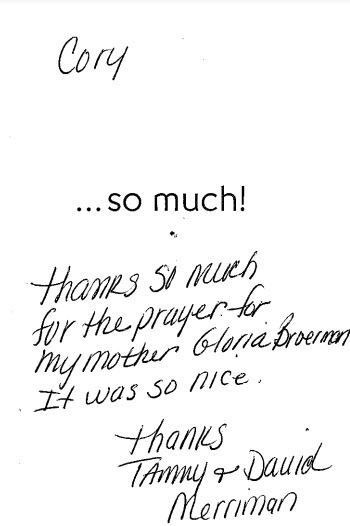 Cory
...so much!
Thanks so much
for the prayer for
my mother Gloria Broerman
It was so nice.
Thanks
Tammy & David
Merriman